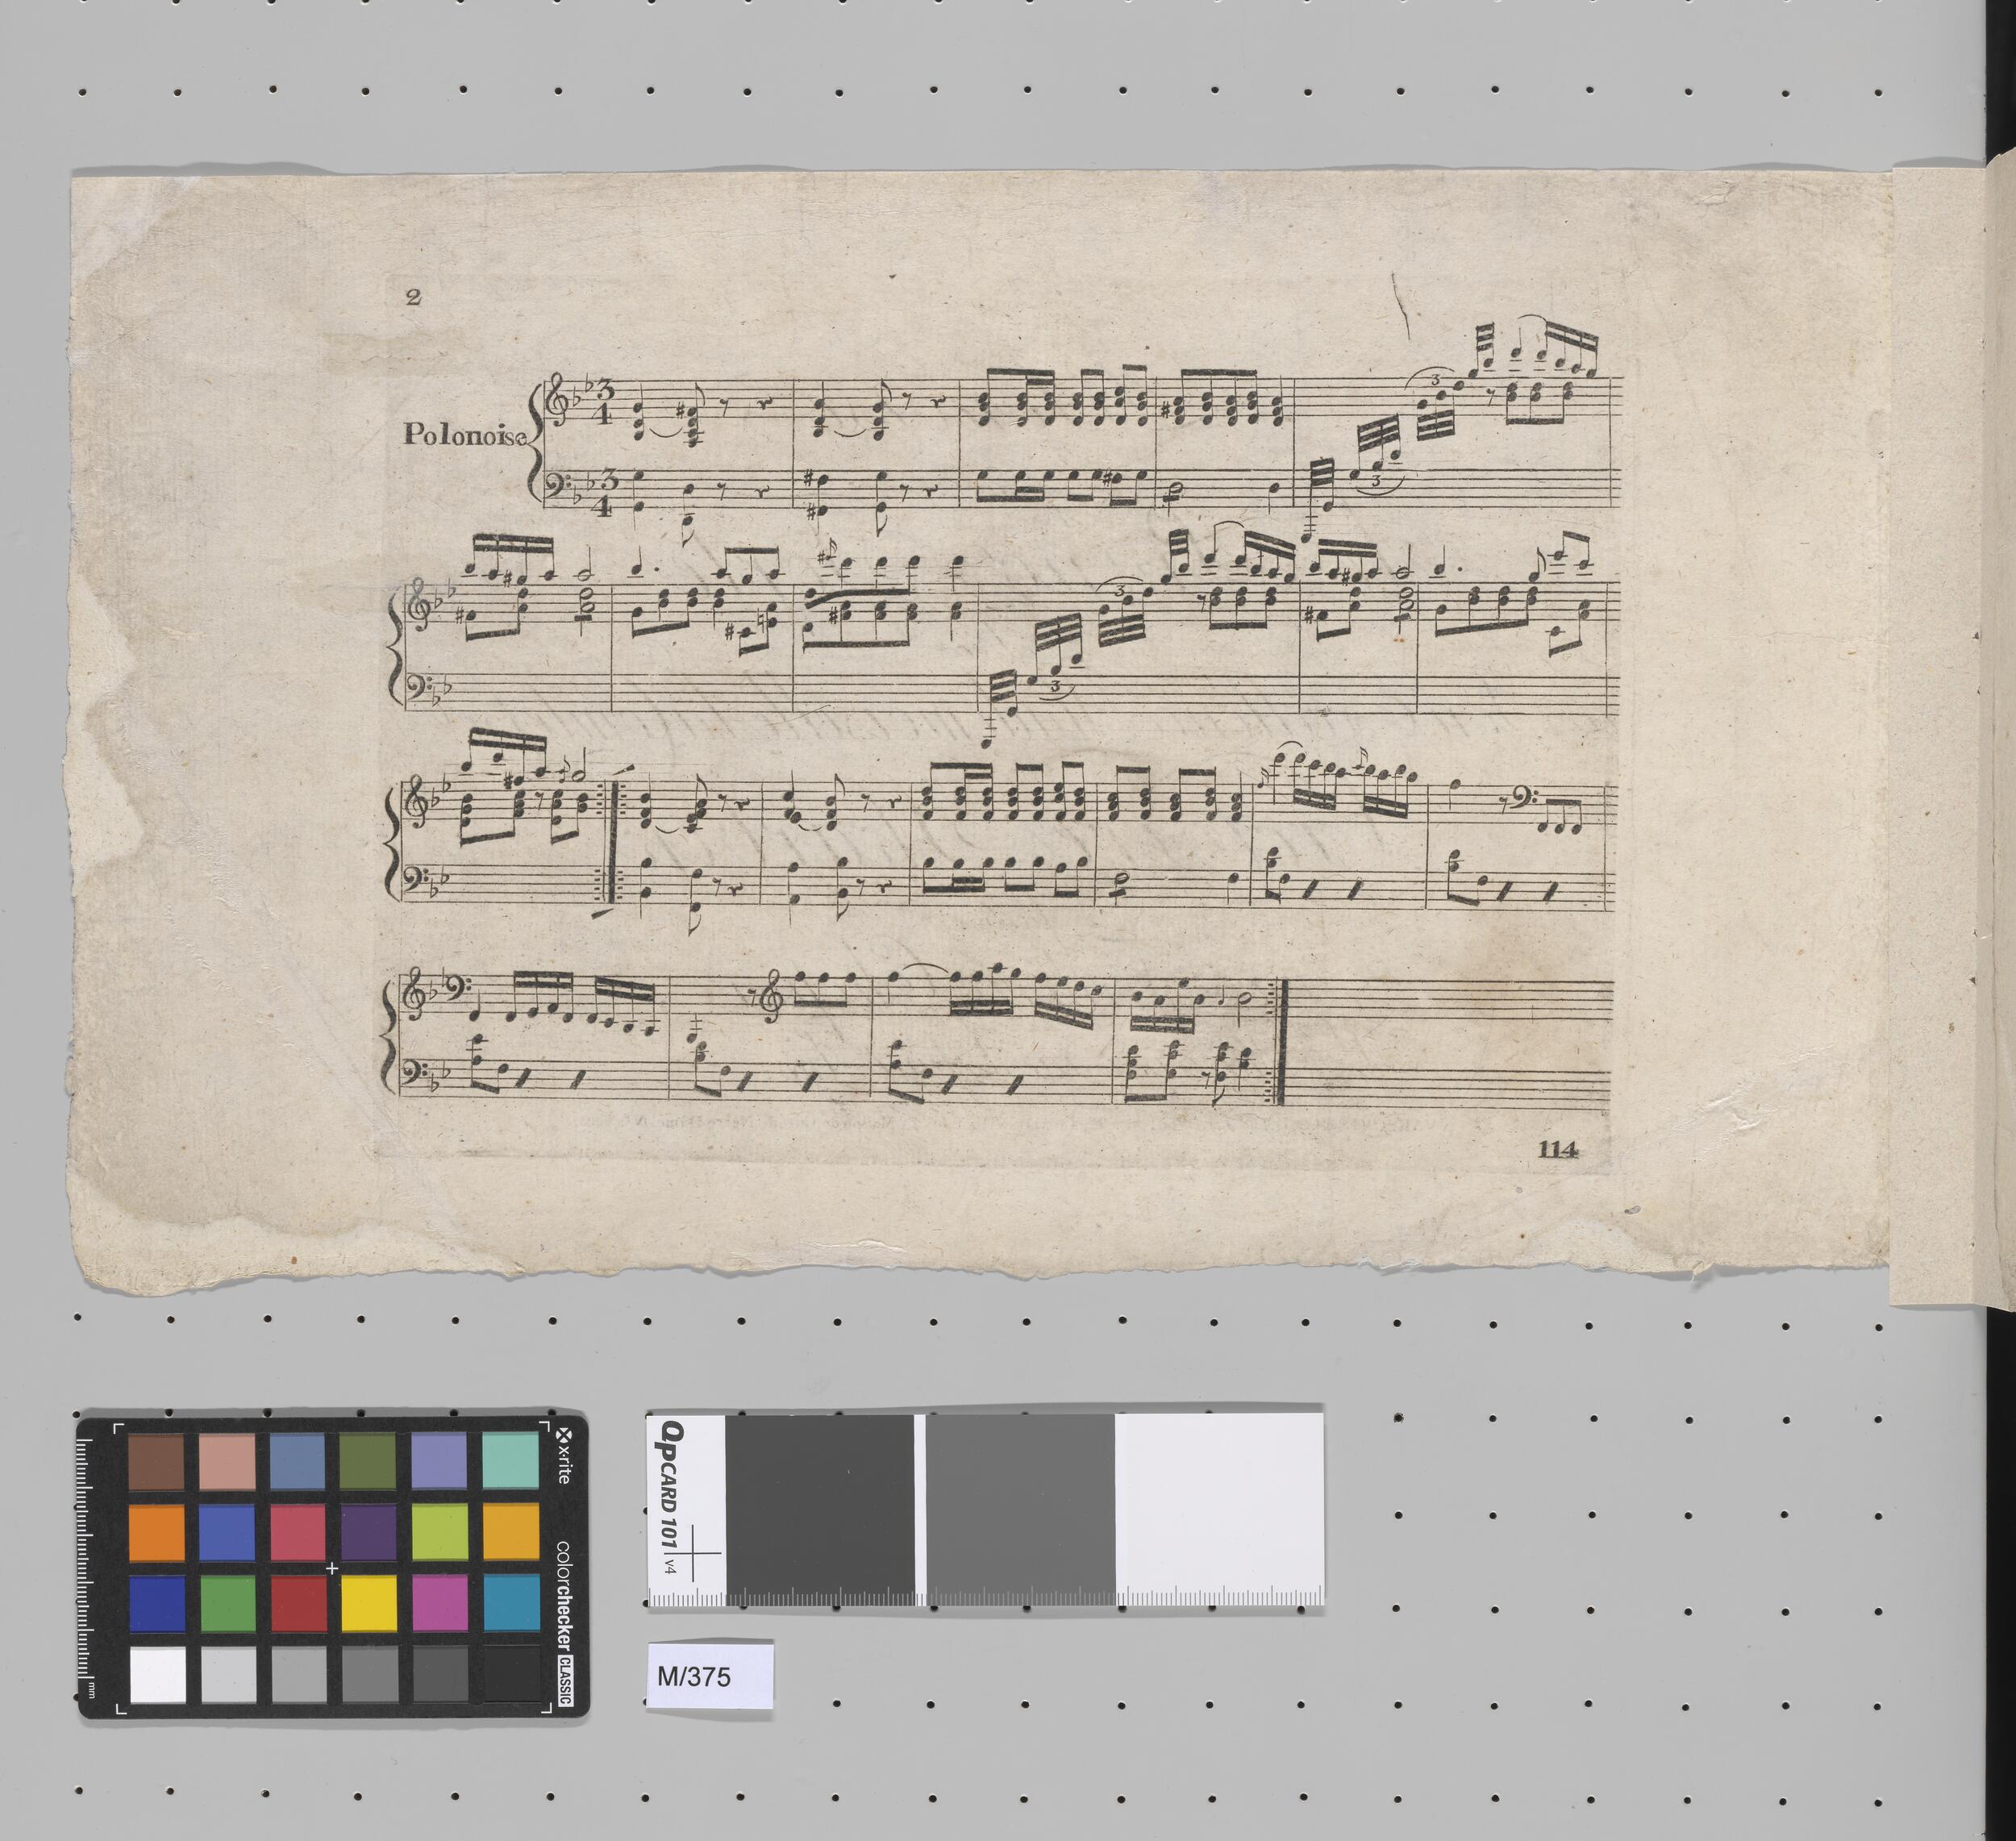 2
Polonoise
3
4
3
4
3
3
3
3
114
x·rite
colorchecker CLASSIC
mm
QPCARD 101 v4
M/375